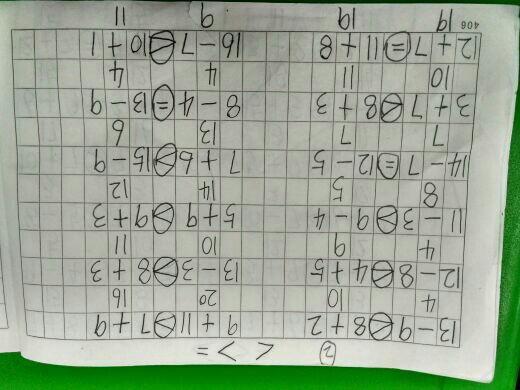 ② > < =
13 - 9 < 8 + 2 9 + 11 > 7 + 9
4 10 20 16
12 - 8 < 4 + 5 13 - 3 < 8 + 3
4 9 10 11
11 - 3 > 9 - 4 5 + 9 > 9 + 3
8 5 14 12
14 - 7 = 12 - 5 7 + 6 > 15 - 9
7 7 13 6
3 + 7 < 8 + 3 8 - 4 = 13 - 9
10 11 4 4
12 + 7 = 11 + 8 16 - 7 < 10 + 1
19 19 9 11
406